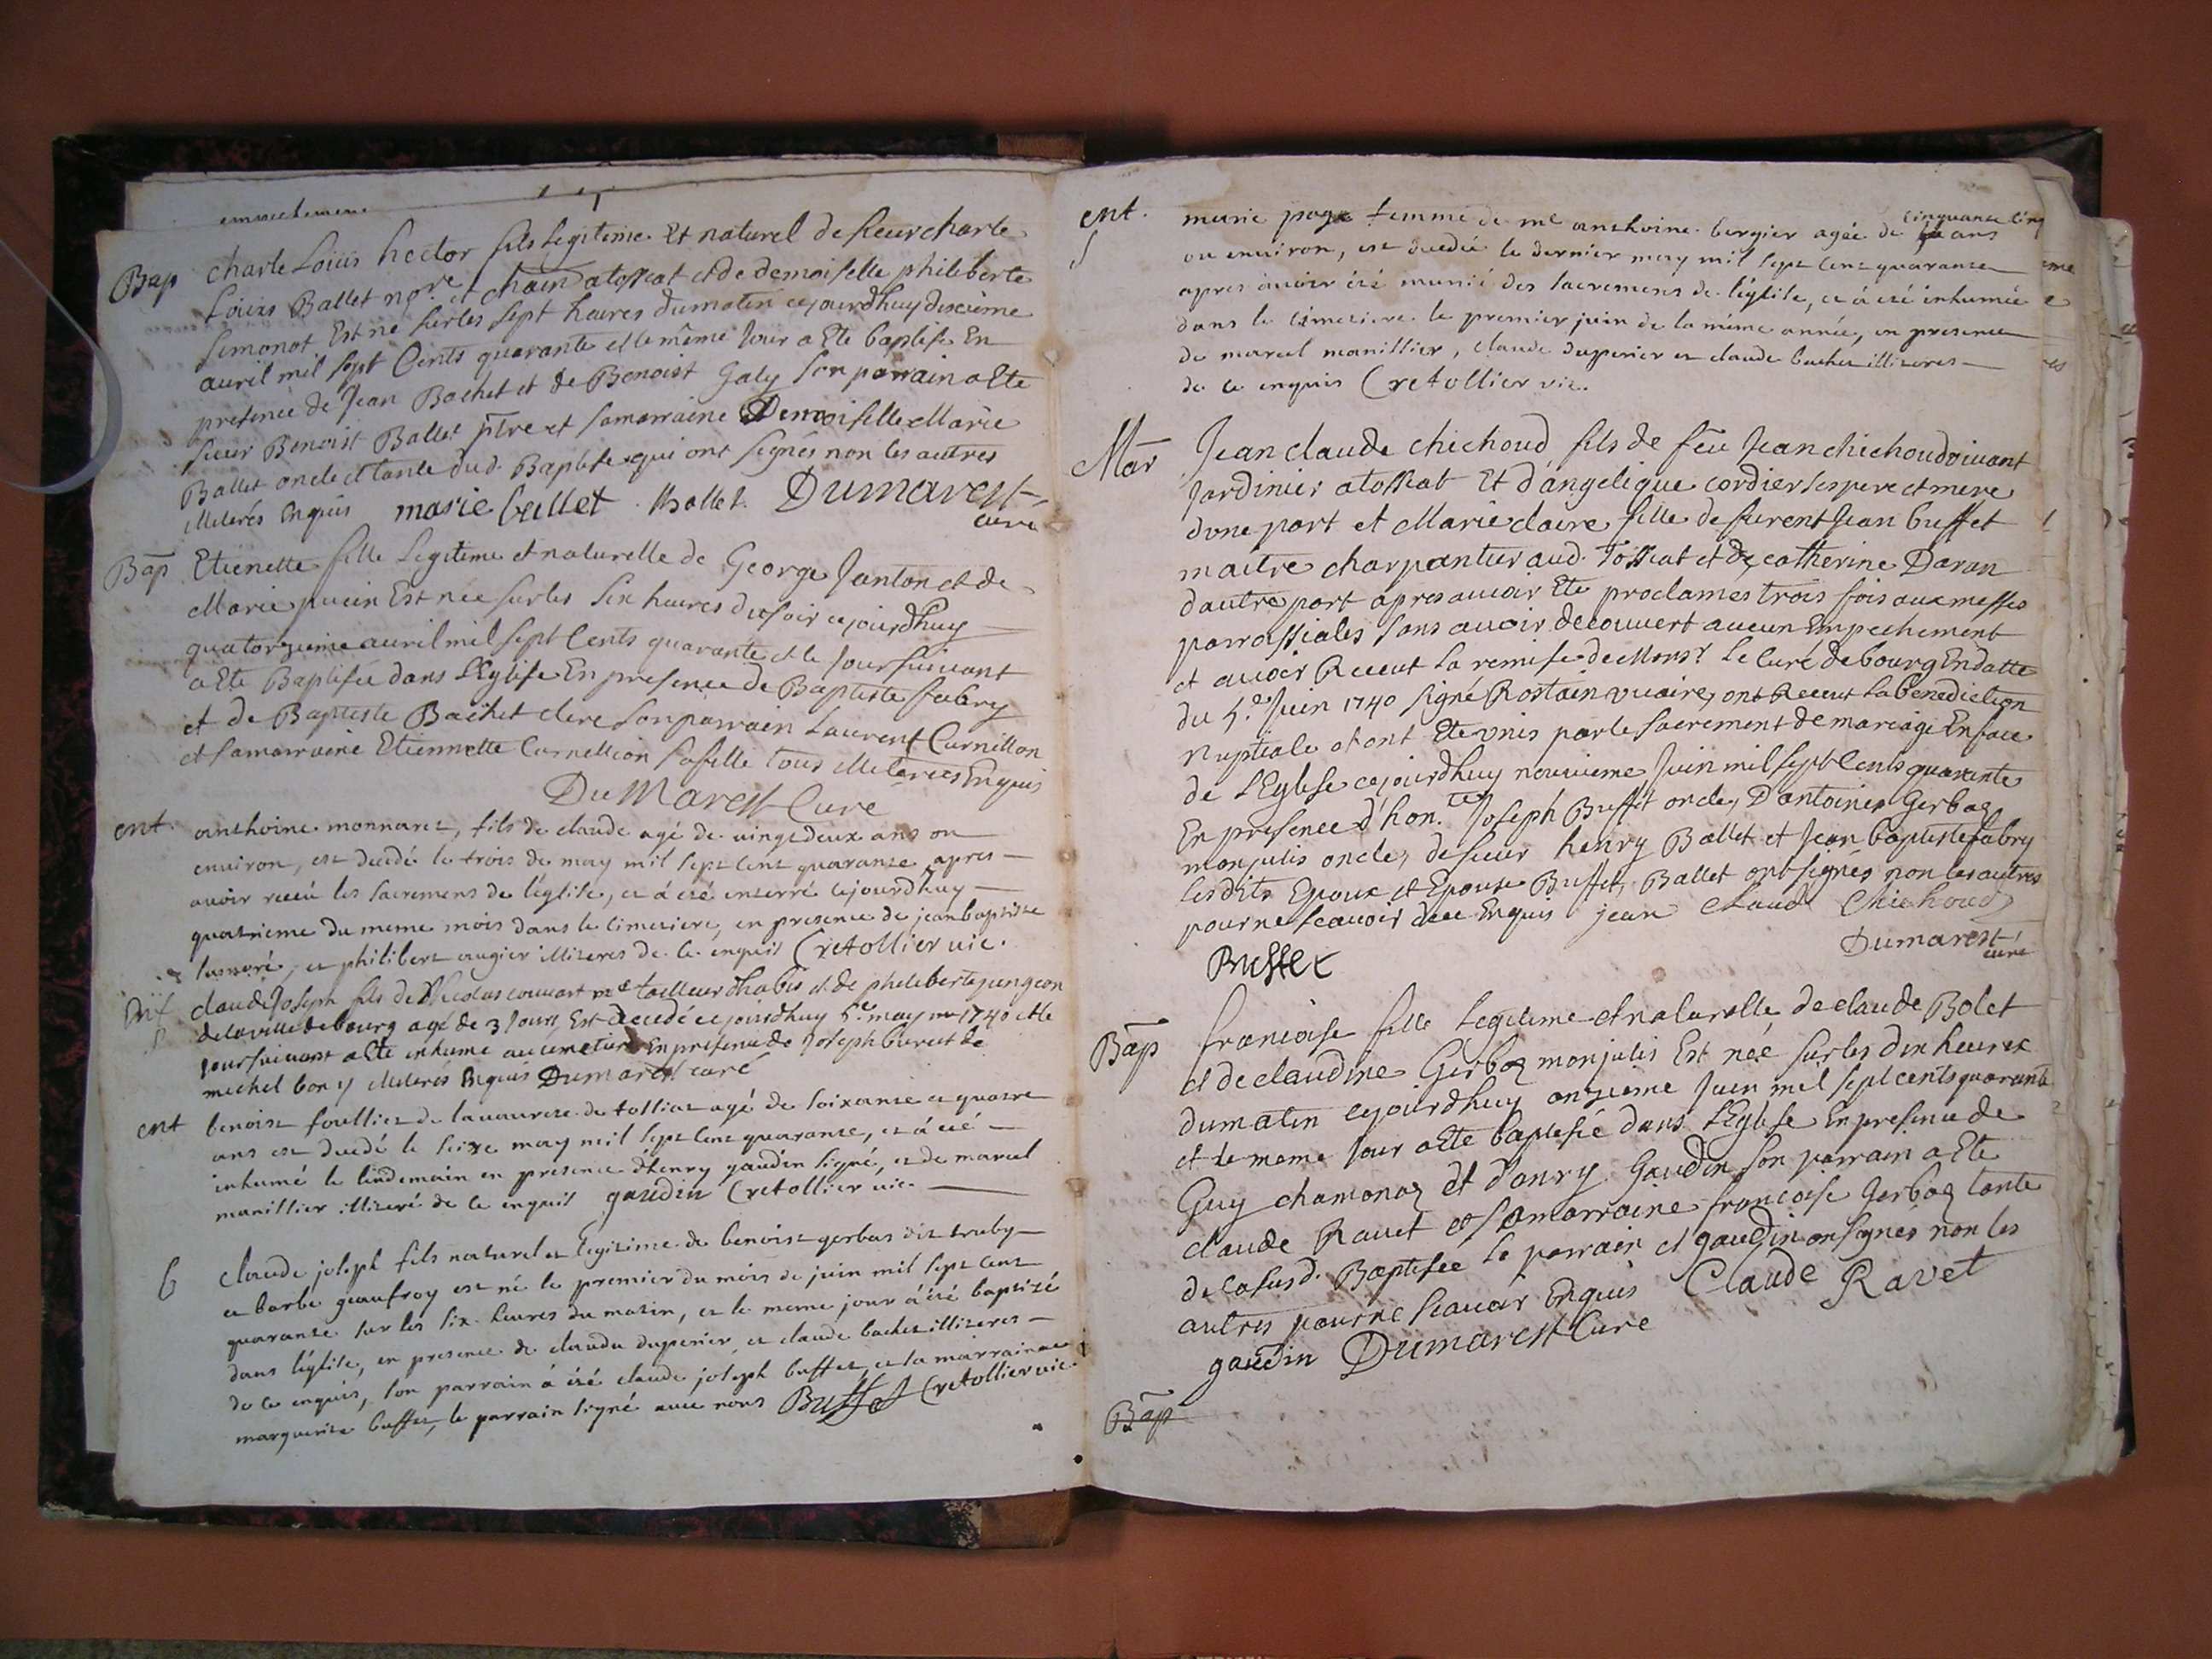 Bap charle Loüis hector fils legitime Et naturel de sieur charle
Loüis Ballet no.re et chain a tossiat et de demoiselle philiberte
simonot Est né sur les sept heures du matin cejourdhuy dixieme
auril mil sept Cents quarante et le même Jour a Ete baptise En
presence de Jean Bachet et de Benoist Galy son parrain a Ete
sieur Benoist Ballet ptre et sa marraine Demoiselle Marie
Ballet oncle et tante dud. Baptise qui ont signés non les autres
illiterés Enquis marie ballet Ballet Dumarest
curé
Bap Etienette fille Legitime et naturelle de George Janton et de
Marie pucin Est née sur les six heures du soir cejourdhuy
quatorzieme auril mil sept Cents quarante et le Jour suiuant
a Ete Baptisée dans L'Eglise En presence de Baptiste fabry
et de Baptiste Bachet clerc son parrain Laurent Curnillon
et sa marraine Etiennette Curnillion sa fille tous illiterés Enquis
DuMarest Cure
ent. anthoine monnaret, fils de claude agé de vingt deux ans ou
environ, est decedé le trois de may mil sept cent quarante apres
avoir reçu les sacremens de l'église, et à été enterré cejourd'huy
quatrieme du meme mois dans le cimetiere, en presence de jean baptiste
et philibert augier illiteres de ce enquis Cretollier vic.
claude Joseph fils de Nicolas couuart me tailleur dhabis et de philiberte pungeon
de la ville de bourg agé de 3 Jours Est decedé cejourdhuy 5.e may 1740 et le
Jour suiuant a Ete inhumé au cimetiere En presence de Joseph buret de
michel bony illiterés Enquis Dumarest curé
ent benoist foulliet de lavaurete de tossiat agé de soixante et quatre
ans est decedé le seize may mil sept cent quarante, et à été
inhumé le lendemain en presence d'henry gaudin signé, et de marcel
manillier illiteré de ce enquis gaudin Cretollier vic.
b claude joseph fils naturel et legitime de benoist gerbas dit truby
et barbe geaufroy est né le premier du mois de juin mil sept cent
quarante sur les six heures du matin, et le meme jour à été baptisé
dans l'église, en presence de claude duperier, et claude bachet illiteres
de ce enquis, son parrain à été claude joseph buffet, et la marraine
marguerite buffet, le parrain signé avec nous Buffet Cretollier vic.
ent. marie page femme de me anthoine bergier agée de cinquante cinq ans
ou environ, est decedée le dernier may mil sept cent quarante
apres avoir été munie des sacremens de l'église, et à été inhumée
dans le cimetiere le premier juin de la même année, en presence
de marcel manillier, claude duperier et claude bachet illiteres
de ce enquis Cretollier vic.
Mar Jean claude chichoud fils de feu Jean chichoud viuant
Jardinier a tossiat Et d'angelique cordier ses pere et mere
dune part et Marie claire fille de furent Jean buffet
maitre charpantier aud. Tossiat et de catherine Daran
dautre part apres auoir Ete proclames trois fois aux messes
parroissiales sans auoir decouuert aucun Empechement
et auoir Receut la remise de Monsr Le Curé de bourg En datte
du 5.e Juin 1740 signé Rostain vicaire, ont Receut la benediction
Nuptiale et ont Ete vnis par le sacrement de mariage En face
de L'Eglise cejourdhuy neuuieme Juin mil sept Cents quarante
En presence d'hon.te Joseph Buffet oncle, D'antoine Gerbaz
monjulis oncle, de sieur henry Ballet et Jean baptiste fabry
lesdits Epoux et Epouse Buffet, Ballet ont signés non les autres
pour ne scauoir de ce Enquis jean Claud Chichoud
Dumarest
curé
Buffet
Bap francoise fille Legitime et naturelle de claude Bolet
et de claudine Gerbaz monjulis Est née sur les dix heures
du matin cejourdhuy onzieme Juin mil sept cents quarante
et le meme Jour a Ete baptisée dans L'Eglise En presence de
Guy chamonaz et d'anry Gaudin son parrain a Ete
claude Rauet et sa marraine francoise Gerbaz tante
de la susd. Baptisée Le parrain et gaudin on signés non les
autres pour ne scauoir Enquis Claude Ravet
gaudin Dumarest Cure
Bap